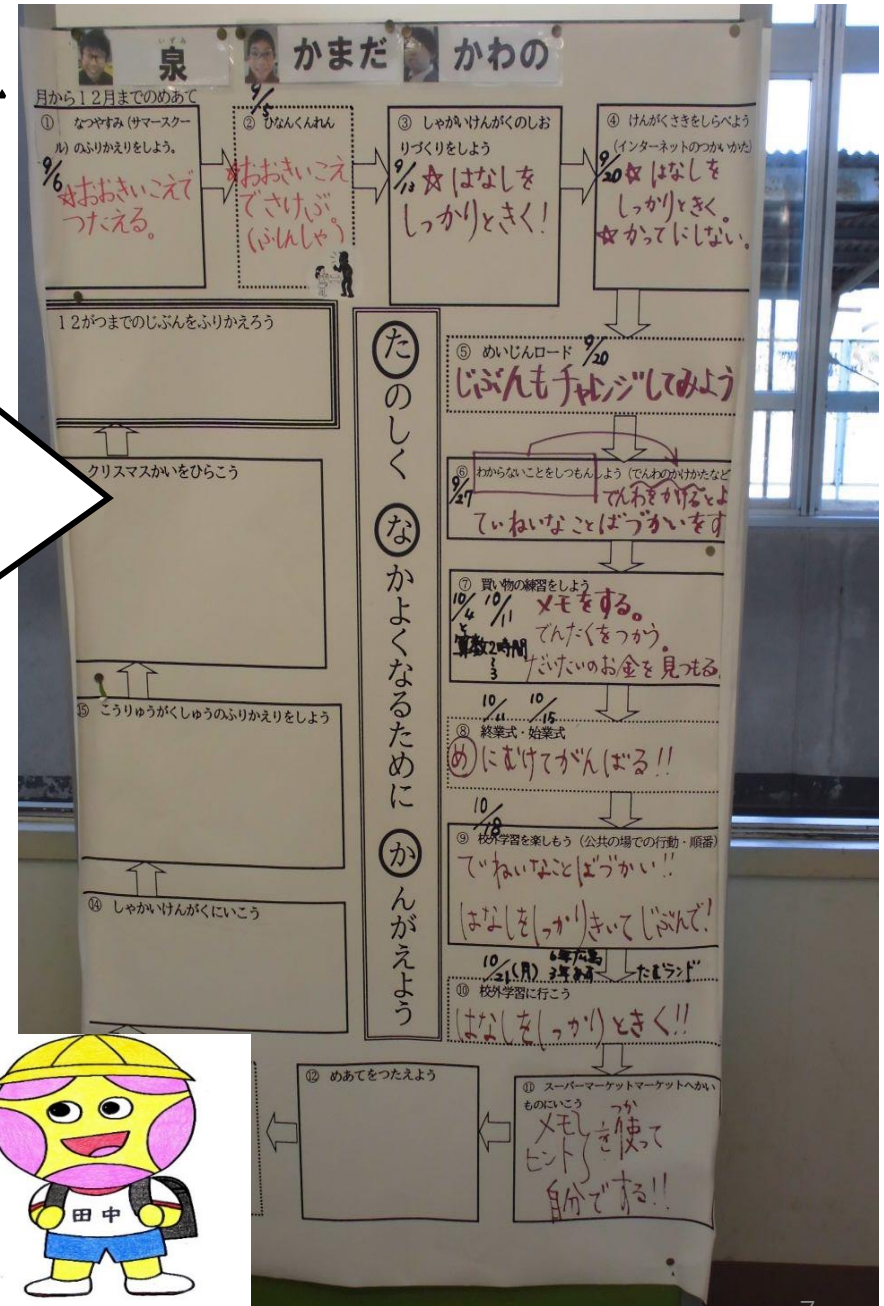 いずみ
泉
かまだ
かわの
月から12月までのめあて
① なつやすみ（サマースクー
ル）のふりかえりをしよう。
9/6
☆おおきいこえで
つたえる。
9/5
② ひなんくんれん
☆おおきいこえ
でさけぶ
(ふしんしゃ)
③ しゃかいけんがくのしお
りづくりをしよう
9/13
☆はなしを
しっかりときく！
④ けんがくさきをしらべよう
(インターネットのつかいかた)
9/20
☆はなしを
しっかりときく。
☆かってにしない。
⑤ めいじんロード 9/20
じぶんもチャレンジしてみよう
⑥ わからないことをしつもんしよう（でんわのかけかたなど
9/27
でんわをかけるとよ
ていねいなことばづかいをす
⑦ 買い物の練習をしよう
10/4 と 10/11
算数2時間
メモをする。
でんたくをつかう。
だいたいのお金を見つもる
10/11 10/15
⑧ 終業式・始業式
めにむけてがんばる!!
10/18
⑨ 校外学習を楽しもう（公共の場での行動・順番）
ていねいなことばづかい!!
はなしをしっかりきいてじぶんで!
10/21(月)
6年広島
3年
たむランド
⑩ 校外学習に行こう
はなしをしっかりときく!!
⑪ スーパーマーケットマーケットへかい
ものにいこう
メモ
ヒント
を使って
つか
自分でする!!
⑫ めあてをつたえよう
⑭ しゃかいけんがくにいこう
⑮ こうりゅうがくしゅうのふりかえりをしよう
クリスマスかいをひらこう
12がつまでのじぶんをふりかえろう
たのしく なかよくなるために かんがえよう
田中
7